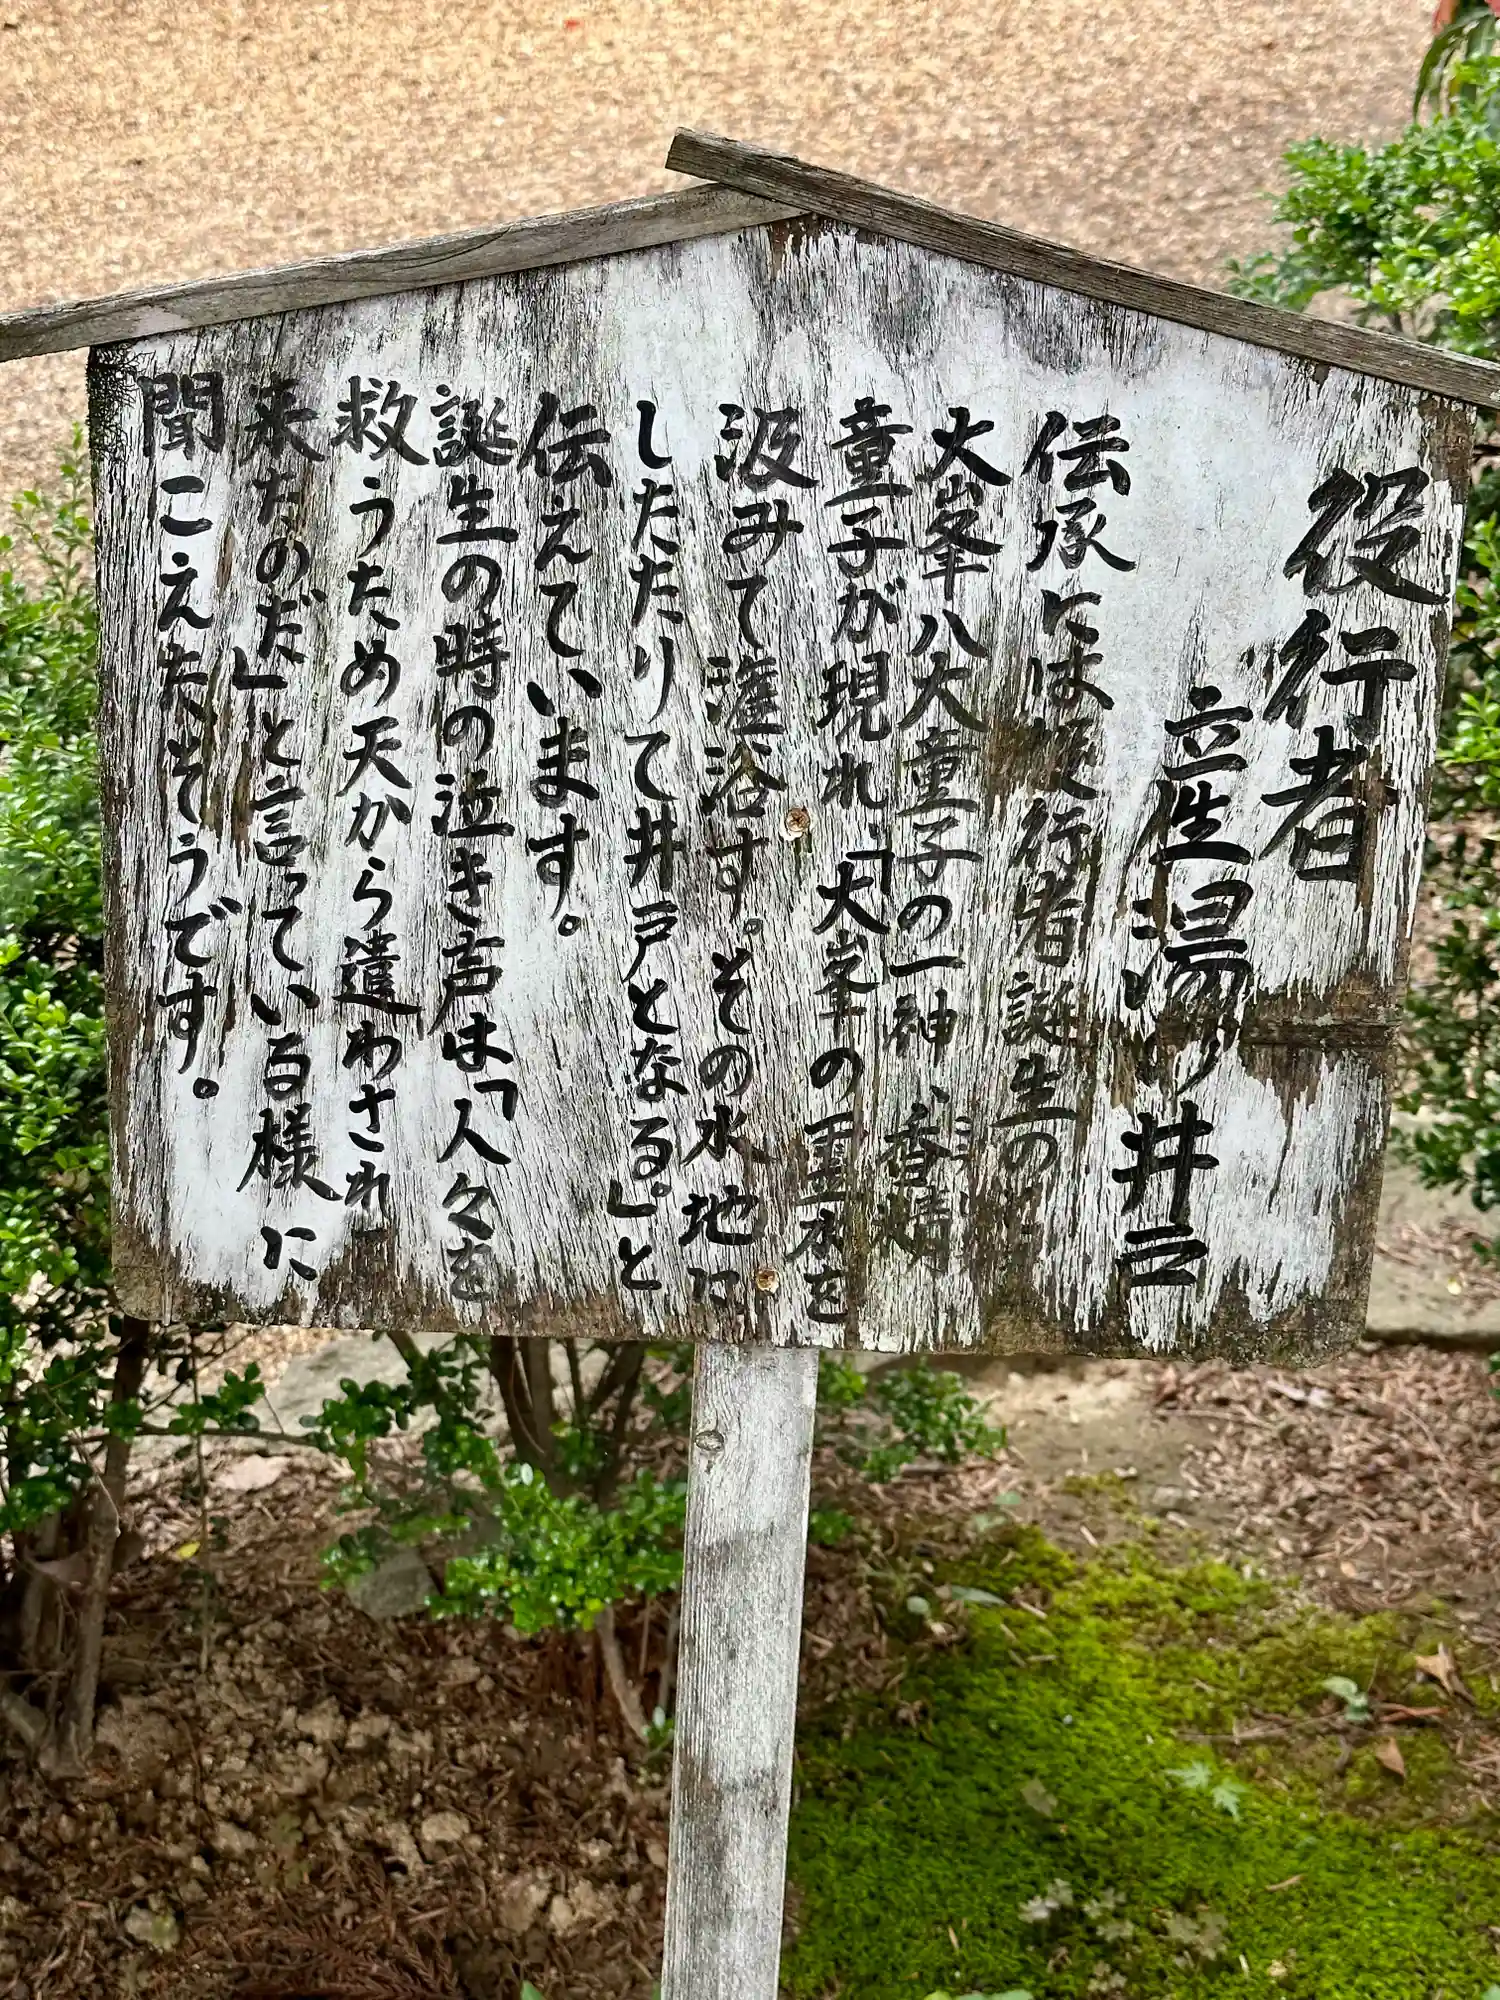 役行者
産湯の井戸
伝承には役行者誕生の
大峯八大童子の一神、香精
童子が現れ、「大峯の霊水を
汲みて灌浴す。その水地に
したたりて井戸となる。」と
伝えています。
誕生の時の泣き声は「人々を
救うため天から遣わされ
来たのだ」と言っている様に
聞こえたそうです。